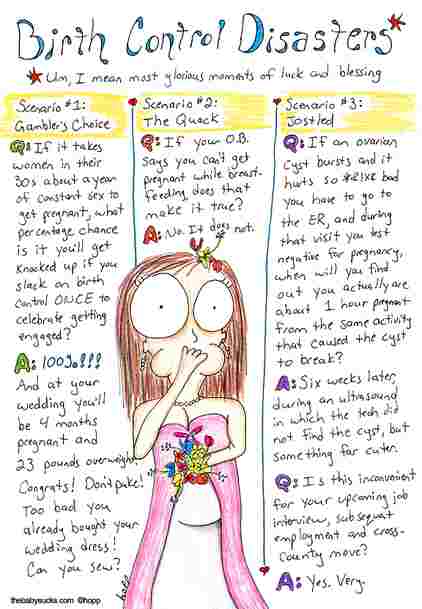 Birth Control Disasters*
* Um, I mean most glorious moments of luck and blessing
Scenario #1:
Gambler's Choice
Q: If it takes
women in their
30s about a year
of constant sex to
get pregnant, what
percentage chance
is it you'll get
Knocked up if you
slack on birth
control ONCE to
celebrate getting
engaged?
A: 100%!!!
And at your
wedding you'll
be 4 months
pregnant and
23 pounds overweight.
Congrats! Don't puke!
Too bad you
already bought your
wedding dress!
Can you sew?
Scenario #2:
The Quack
Q: If your O.B.
says you can't get
pregnant while breast-
feeding, does that
make it true?
A: No. It does not.
Scenario #3:
Jostled
Q: If an ovarian
cyst bursts and it
hurts so *&!x& bad
you have to go to
the ER, and during
that visit you test
negative for pregnancy,
when will you find
out you actually are
about 1 hour pregnant
from the same activity
that caused the cyst
to break?
A: Six weeks later,
during an ultrasound
in which the tech did
not find the cyst, but
something far cuter.
Q: Is this inconvenient
for your upcoming job
interview, subsequent
employment and cross-
county move?
A: Yes. Very.
hopp
thebabysucks.com @hopp